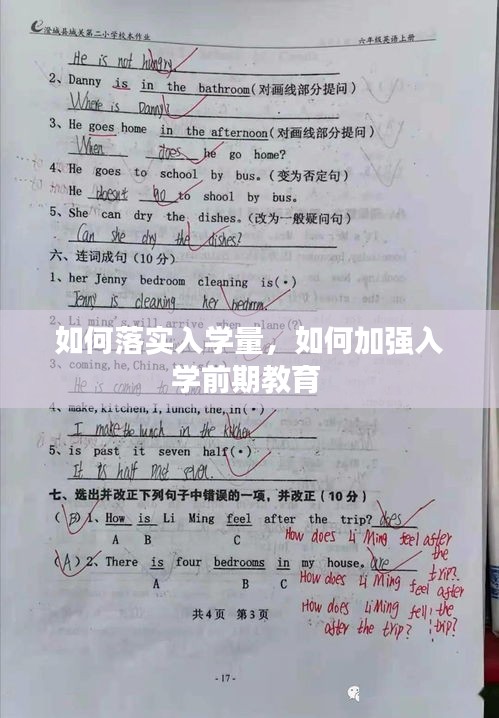 澄城县城关第二小学校本作业 六年级英语上册
He is not hungry.
2、Danny is in the bathroom(对画线部分提问)
Where is Danny?
3、He goes home in the afternoon(对画线部分提问)
When does he go home?
4、He goes to school by bus.(变为否定句)
He doesnt go to shool by bus.
5、She can dry the dishes.(改为一般疑问句)
Can she dry the dishes?
六、连词成句(10分)
1、her Jenny bedroom cleaning is(•)
Jenny is cleaning her bedroom.
2、Li ming's,will,arrive,when,plane(?)
如何落实入学量，如何加强入
学前期教育
3、coming,he,China,
He is coming
4、make,kitchen,I,lunch,the,in(•)
I make the lunch in the kitchen
5、is past it seven half(•)
It is half past seven.
七、选出并改正下列句子中错误的一项,并改正(10分)
(B)1、How is Li Ming feel after the trip? does
A B C
How does Li Ming feel after the trip?
(A)2、There is four bedrooms in my house. are
A B C
How does Li Ming feel after the trip?
How does Li Ming fell after the trip?
共4页 第3页
-17-